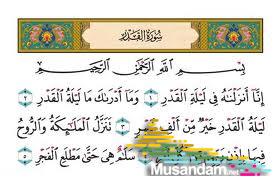 سُورَةُ الْقَدْرِ
بِسْمِ اللَّهِ الرَّحْمَٰنِ الرَّحِيمِ
إِنَّا أَنزَلْنَاهُ فِي لَيْلَةِ الْقَدْرِ ١ وَمَا أَدْرَاكَ مَا لَيْلَةُ الْقَدْرِ
٢ لَيْلَةُ الْقَدْرِ خَيْرٌ مِّنْ أَلْفِ شَهْرٍ ٣ تَنَزَّلُ الْمَلَائِكَةُ وَالرُّوحُ
فِيهَا بِإِذْنِ سَلَامٌ هِيَ حَتَّىٰ مَطْلَعِ الْفَجْرِ ٥
Musandam.net